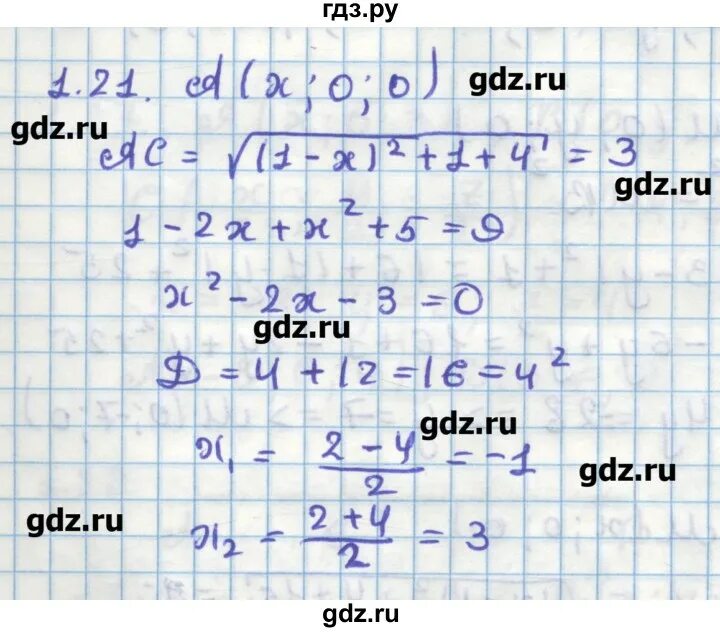 гдз.ру
1.21. A(x; 0; 0) gdz.ru
gdz.ru
AC = √((1 - x)² + 1 + 4) = 3
gdz.ru
1 - 2x + x² + 5 = 9
x² - 2x - 3 = 0
gdz.ru
D = 4 + 12 = 16 = 4²
gdz.ru
x₁ = (2 - 4)/2 = -1
gdz.ru
gdz.ru
x₂ = (2 + 4)/2 = 3
gdz.ru